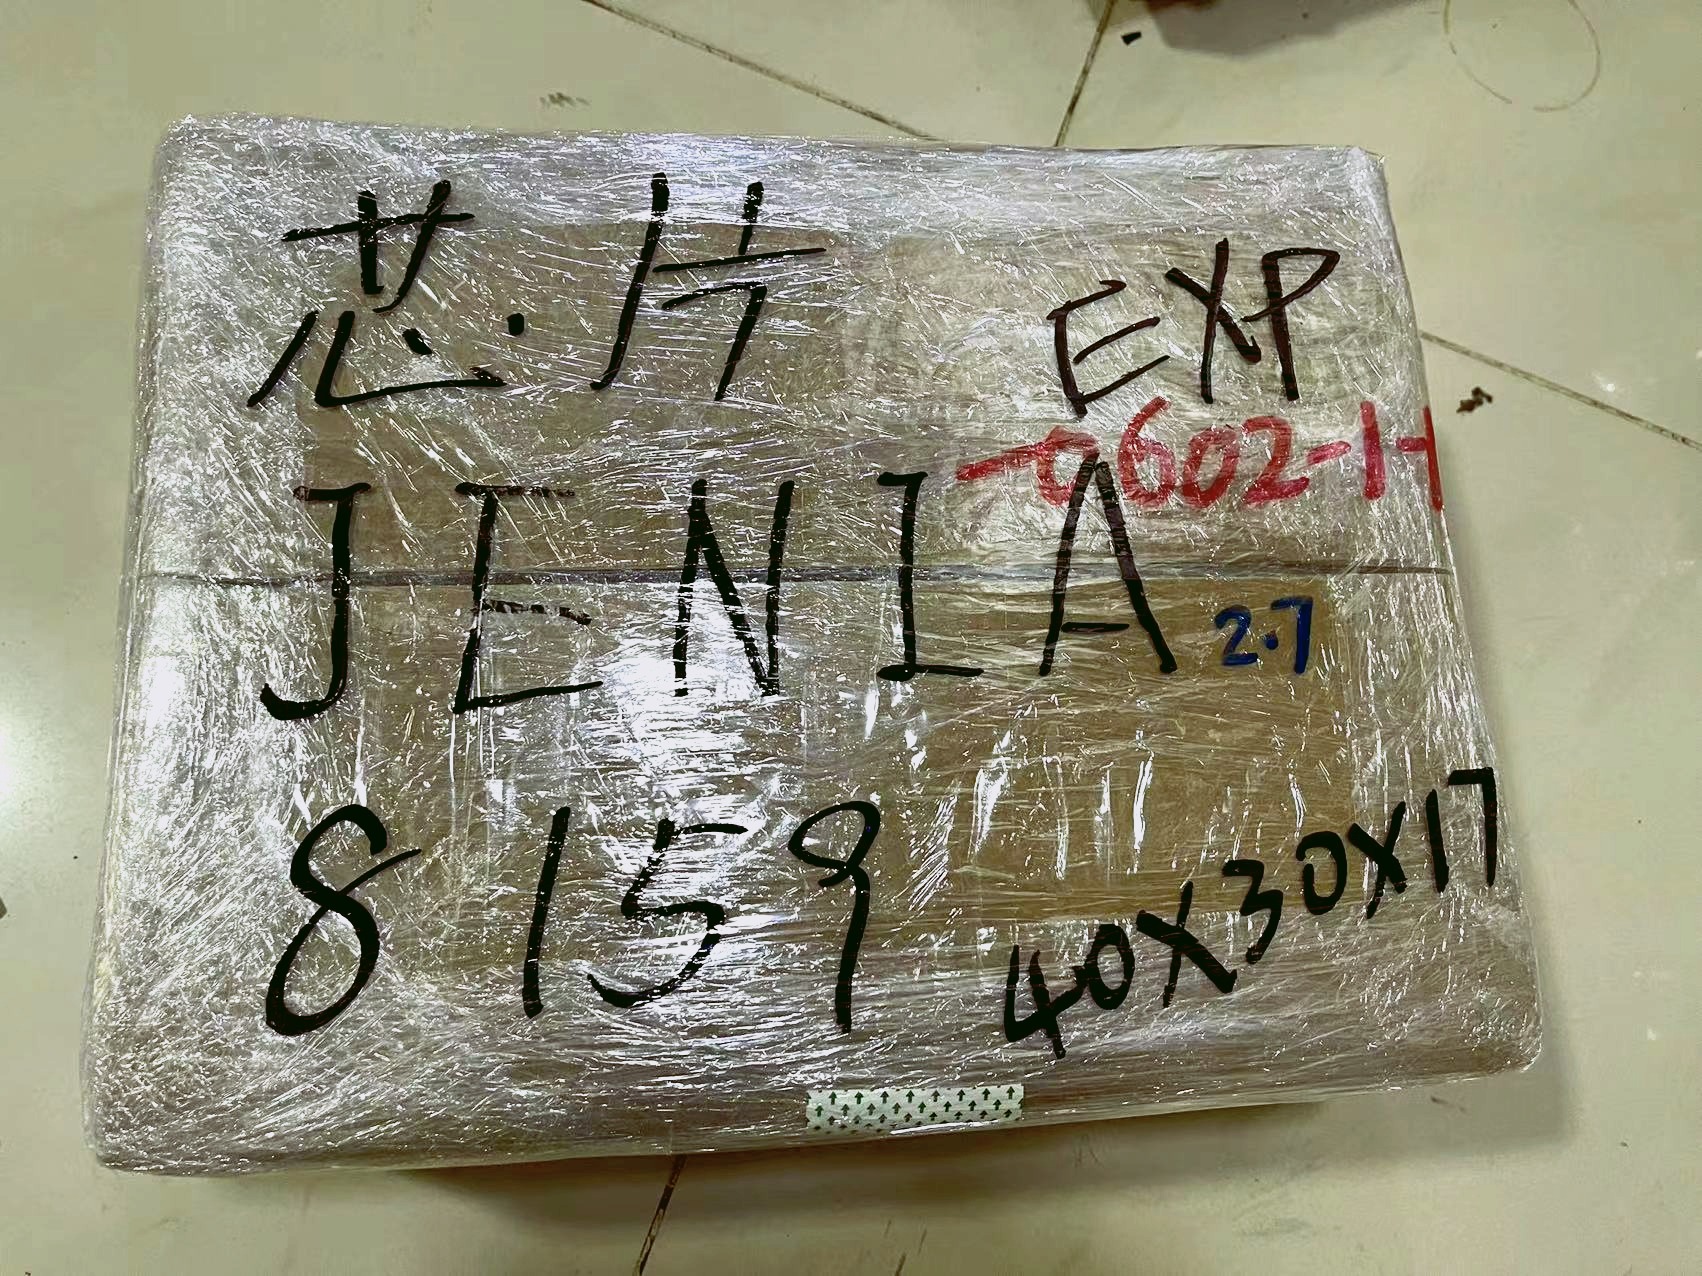 芯片
EXP
-0602-1-1
JENIA
2.7
8159
40X30X17